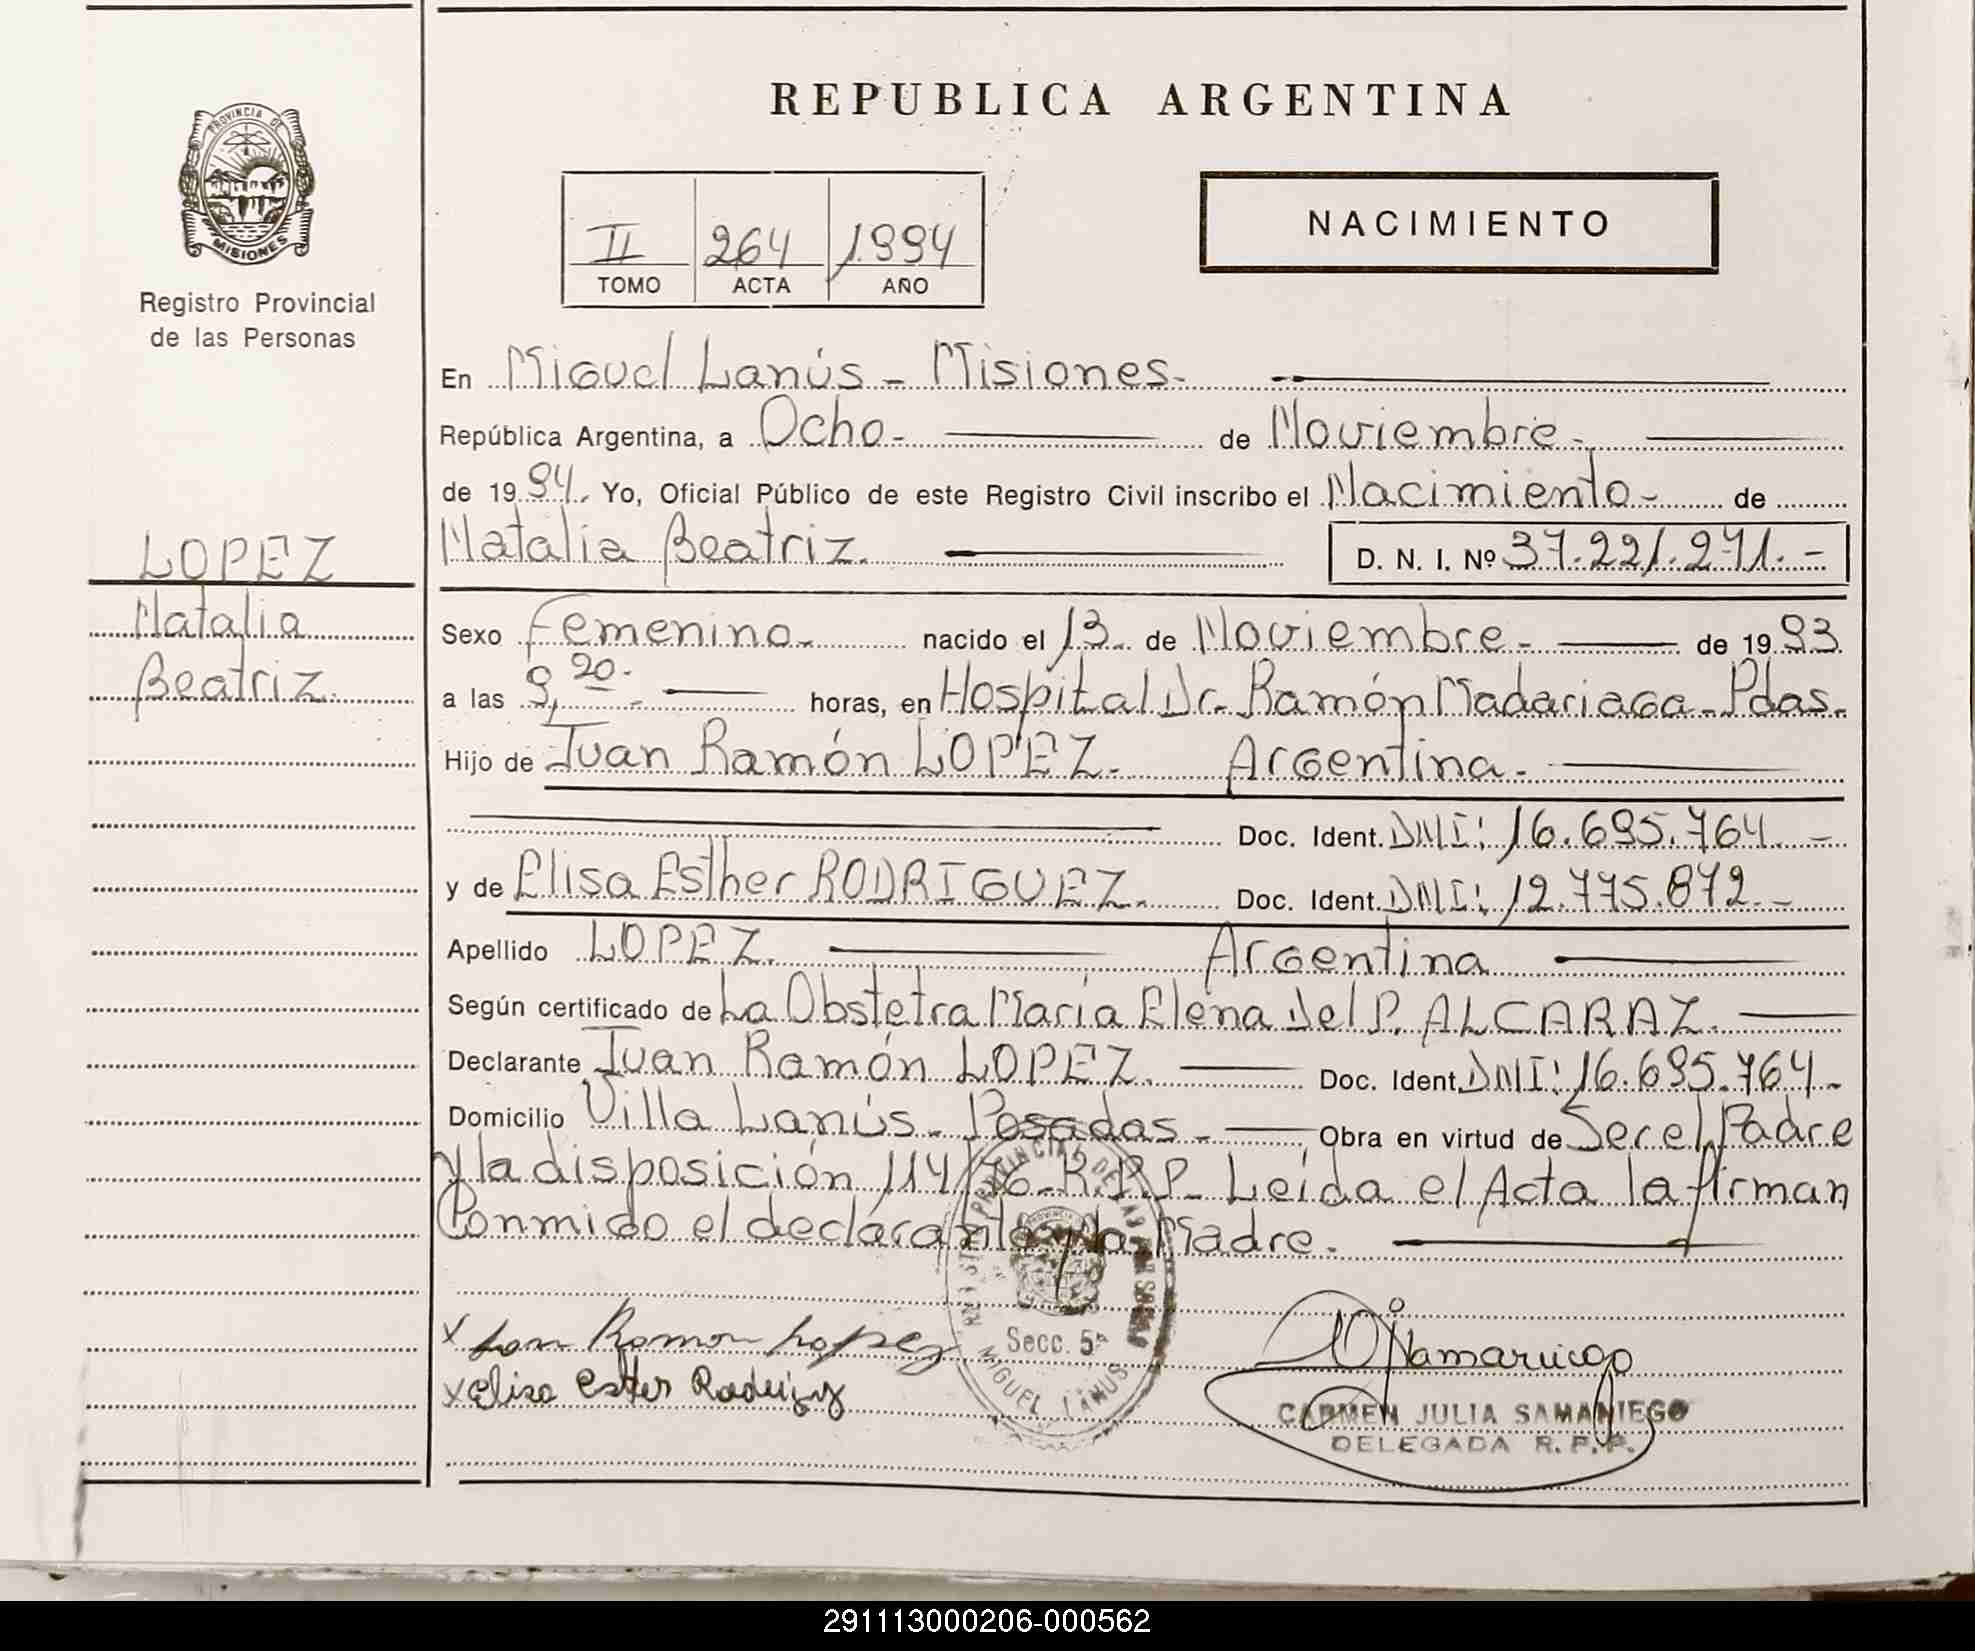 REPUBLICA ARGENTINA
PROVINCIA DE
MISIONES
Registro Provincial
de las Personas
II 264 1.994
TOMO ACTA AÑO
NACIMIENTO
En Miguel Lanús - Misiones.
República Argentina, a Ocho - de Noviembre -
de 1994. Yo, Oficial Público de este Registro Civil inscribo el Nacimiento - de
Natalia Beatriz. D. N. I. Nº 37.221.271. -
LOPEZ
Natalia
Beatriz.
Sexo Femenino. nacido el 13 de Noviembre - de 1993
a las 9,20. - horas, en Hospital Dr. Ramón Madariaga - Pdas.
Hijo de Juan Ramón LOPEZ. Argentina -
Doc. Ident. DNI: 16.695.764. -
y de Elisa Esther RODRIGUEZ. Doc. Ident. DNI: 12.775.872. -
Apellido LOPEZ. Argentina
Según certificado de La Obstetra María Elena Del P. ALCARAZ.
Declarante Juan Ramón LOPEZ. Doc. Ident. DNI: 16.695.764 -
Domicilio Villa Lanús - Posadas - Obra en virtud de Ser el Padre
y la disposición 114/76 - R.P.P - Leída el Acta la firman
Conmigo el declarante y la Madre.
x Juan Ramon Lopez
x Elisa Ester Rodriguez
Secc. 5ª
MIGUEL LANUS
CARMEN JULIA SAMANIEGO
DELEGADA R. P. P.
291113000206-000562